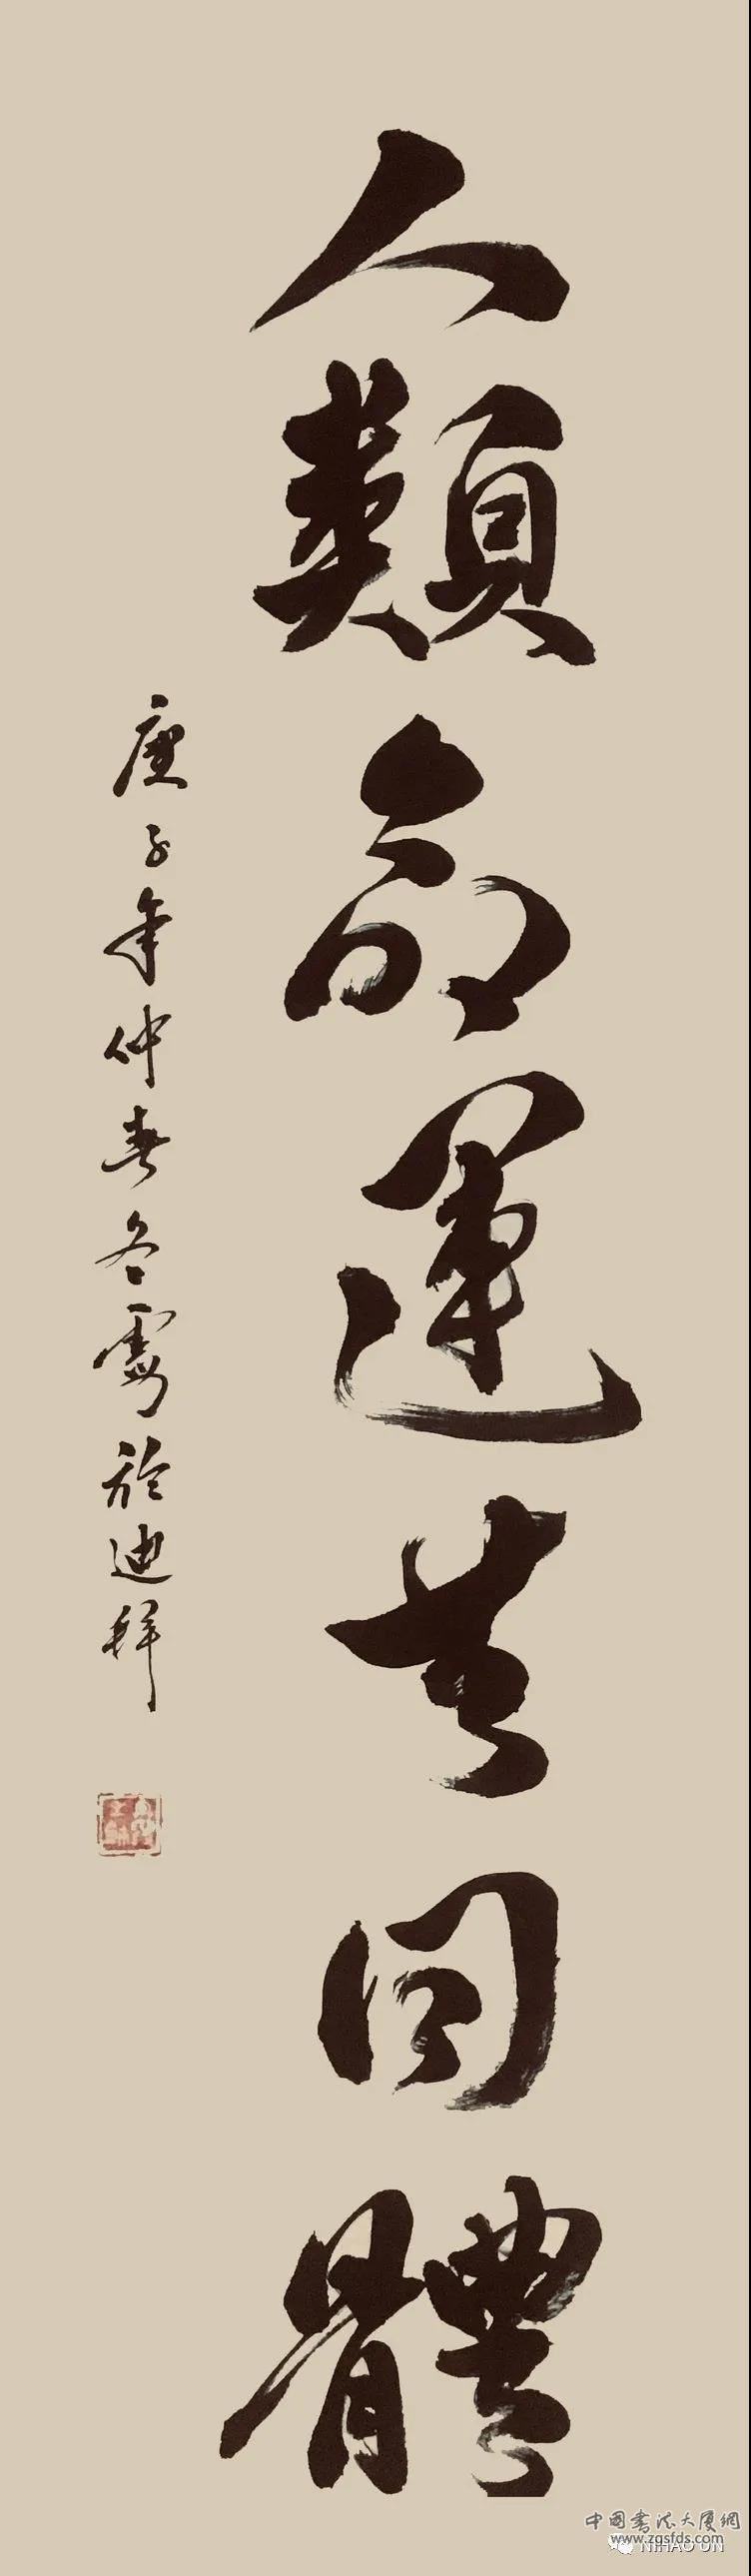 人類命運共同體
庚子年仲春冬雪於迪拜
中国书法大厦網
www.zgsfds.com
NIHAO UN